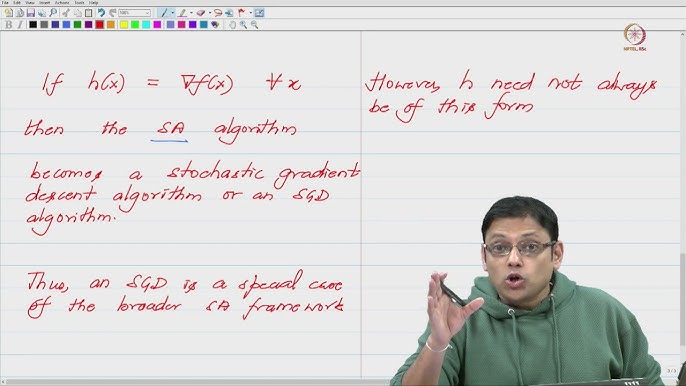 File Edit View Insert Actions Tools Help
NPTEL, IISc
If h(x) = ∇f(x) ∀ x
then the SA algorithm
becomes a stochastic gradient
descent algorithm or an SGD
algorithm.
Thus, an SGD is a special case
of the broader SA framework
However, h need not always
be of this form